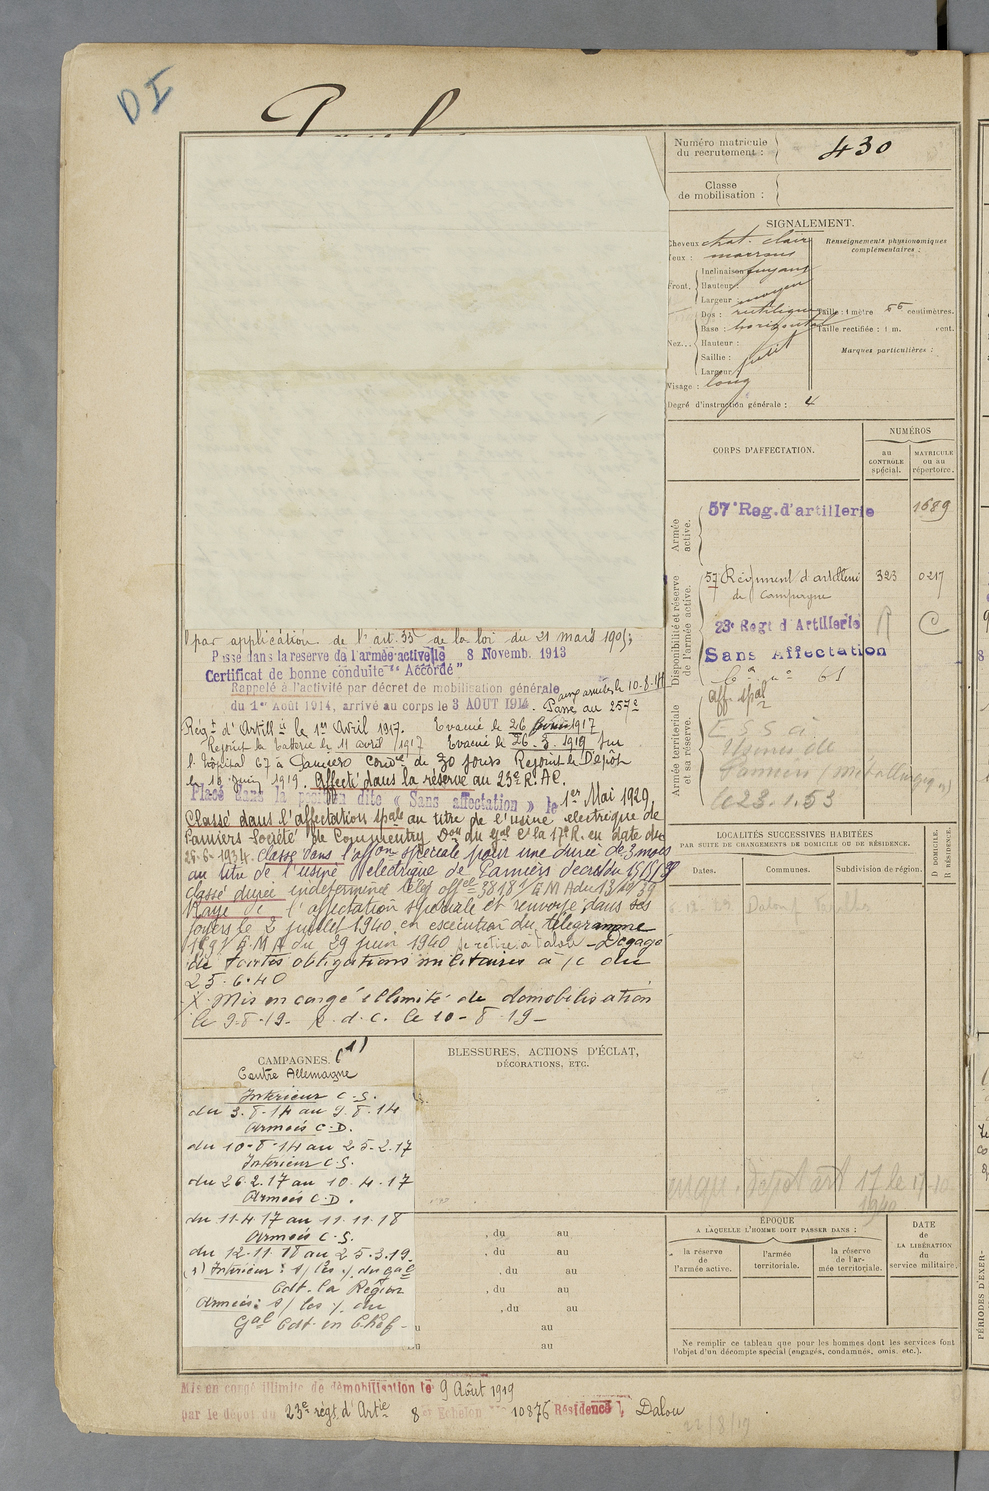 DI
Numéro matricule
du recrutement :
430
Classe
de mobilisation :
SIGNALEMENT.
Cheveux chat. clair
Yeux : marrons
Front.
Inclinaison fuyant
Hauteur :
Largeur : moyen
Nez...
Dos : rectiligne
Base : horizontal
Hauteur :
Saillie : petit
Largeur :
Visage : long
Degré d'instruction générale : 4
Renseignements physionomiques
complémentaires :
Taille : 1 mètre 66 centimètres.
Taille rectifiée : 1 m. cent.
Marques particulières :
CORPS D'AFFECTATION.
NUMÉROS
au
CONTRÔLE
spécial.
MATRICULE
ou au
répertoire.
Armée
active.
57e Reg. d'artillerie
1689
Disponibilité et réserve
de l'armée active.
57 Régiment d'artillerie
de campagne
323
0217
23e Regt d'Artillerie
R
C
Sans Affectation
61
Armée territoriale
et sa réserve.
Aff. spal
E S S à
Usines de
Pamiers (métallurgique)
le 23.1.53
par application de l'art. 33 de la loi du 21 mars 1905;
Passé dans la reserve de l'armée activelle 8 Novemb. 1913
Certificat de bonne conduite "Accordé"
Rappelé à l'activité par décret de mobilisation générale
aux armées le 10-8-14
du 1er Août 1914, arrivé au corps le 3 AOUT 1914. Passé au 257e
Régt d'Artill ie le 1er Avril 1917. Evacué le 26 février 1917
Rejoint la batterie le 11 avril 1917 Evacué le 26.3.1919 sur
l'hôpital 67 à Pamiers Convce de 30 jours Rejoint le Dépôt
le 18 Juin 1919. Affecté dans la réserve au 23e R.AC.
Placé dans la position dite « Sans affectation » le 1er Mai 1929
Classé dans l'affectation spale au titre de l'usine electrique de
Pamiers Société de Commentry Don du gal Ct la 17e R. en date du
26-6-1934. Classé dans l'affon spéciale pour une durée de 3 mois
au titre de l'usine électrique de Pamiers
classé durée indeterminée
Rayé de l'affectation spéciale et renvoyé dans ses
foyers le 2 juillet 1940 en execution du télégramme
E.M.A du 29 juin 1940 se retire à Dalou - Dégagé
de toutes obligations militaires à /c du
25.6.40
X. Mis en congé illimité de démobilisation
le 9-8-19- r.d.c. le 10-8-19-
LOCALITÉS SUCCESSIVES HABITÉES
PAR SUITE DE CHANGEMENTS DE DOMICILE OU DE RÉSIDENCE.
Dates.
Communes.
Subdivision de région.
D DOMICILE.
R RÉSIDENCE.
Dalou
CAMPAGNES. (1)
Contre Allemagne
Intérieur C.S.
du 3.8.14 au 9.8.14
Armées C.D.
du 10-8-14 au 25-2.17
Intérieur C.S.
du 26.2.17 au 10.4.17
Armées C.D.
du 11.4.17 au 11.11.18
Armées C.S.
du 12.11.18 au 25.3.19
(1) Intérieur : s/ les /. du gal
Cdt. la Région
Armées : s/ les /. du
Gal Cdt en Chef -
BLESSURES, ACTIONS D'ÉCLAT,
DÉCORATIONS, ETC.
, du au
, du au
, du au
, du au
, du au
au
au
Dépôt art 17 le
1940
ÉPOQUE
A LAQUELLE L'HOMME DOIT PASSER DANS :
la réserve
de
l'armée active.
l'armée
territoriale.
la réserve
de l'ar-
mée territoriale.
DATE
de
LA LIBÉRATION
du
service militaire.
Ne remplir ce tableau que pour les hommes dont les services font
l'objet d'un décompte spécial (engagés, condamnés, omis, etc.).
Mis en congé illimité de démobilisation le 9 Août 1919
par le dépôt du 23e régt. d'Artie 8e Echelon No 10876 Résidence Dalou
22/8/19
PÉRIODES D'EXER-